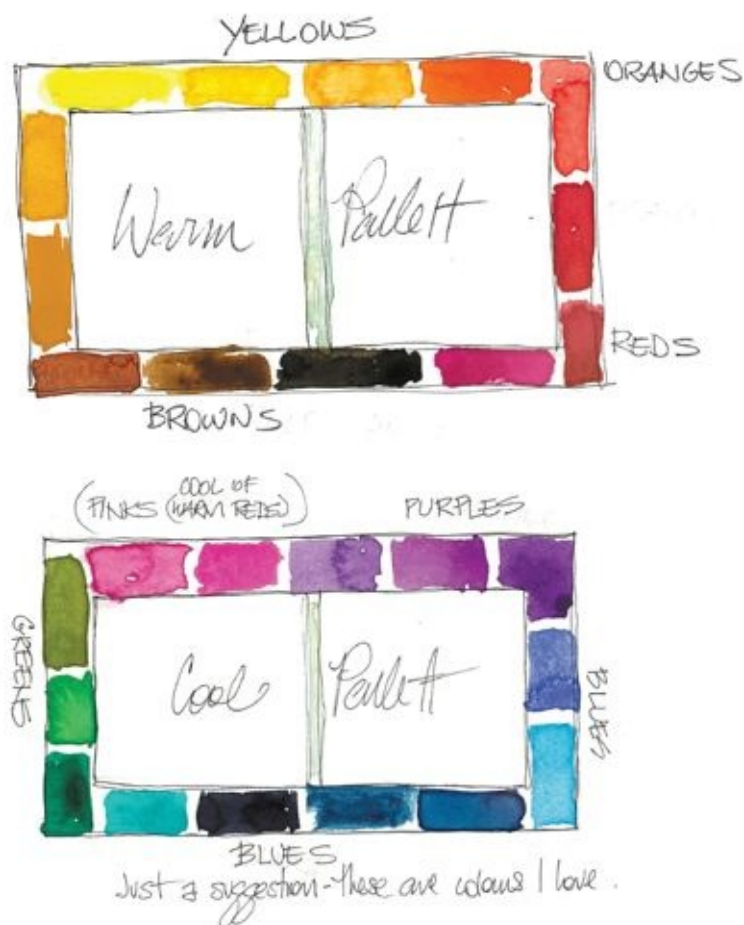 YELLOWS
ORANGES
Warm Pallett
REDS
BROWNS
(PINKS (COOL OF WARM REDS))
PURPLES
GREENS
Cool Pallett
BLUES
BLUES
Just a suggestion - these are colours I love.